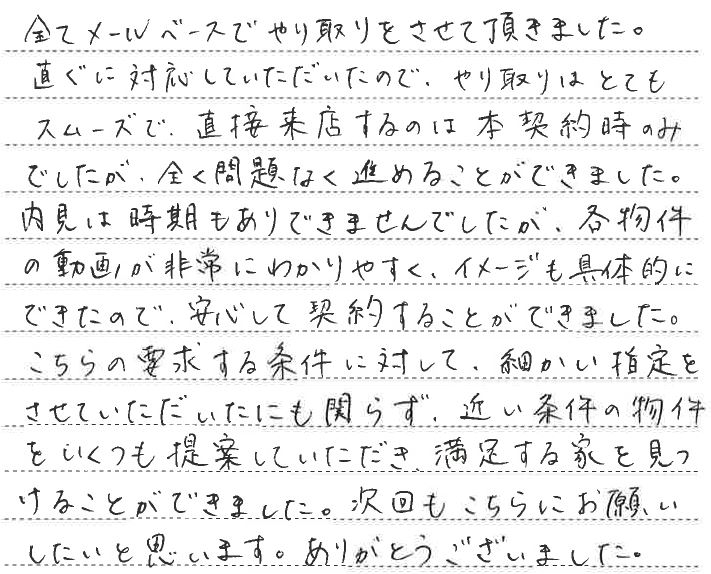 全てメールベースでやり取りをさせて頂きました。
直ぐに対応していただいたので、やり取りはとても
スムーズで、直接来店するのは本契約時のみ
でしたが、全く問題なく進めることができました。
内見は時期もありできませんでしたが、各物件
の動画が非常にわかりやすく、イメージも具体的に
できたので、安心して契約することができました。
こちらの要求する条件に対して、細かい指定を
させていただいたにも関らず、近い条件の物件
をいくつも提案していただき、満足する家を見つ
けることができました。次回もこちらにお願い
したいと思います。ありがとうございました。